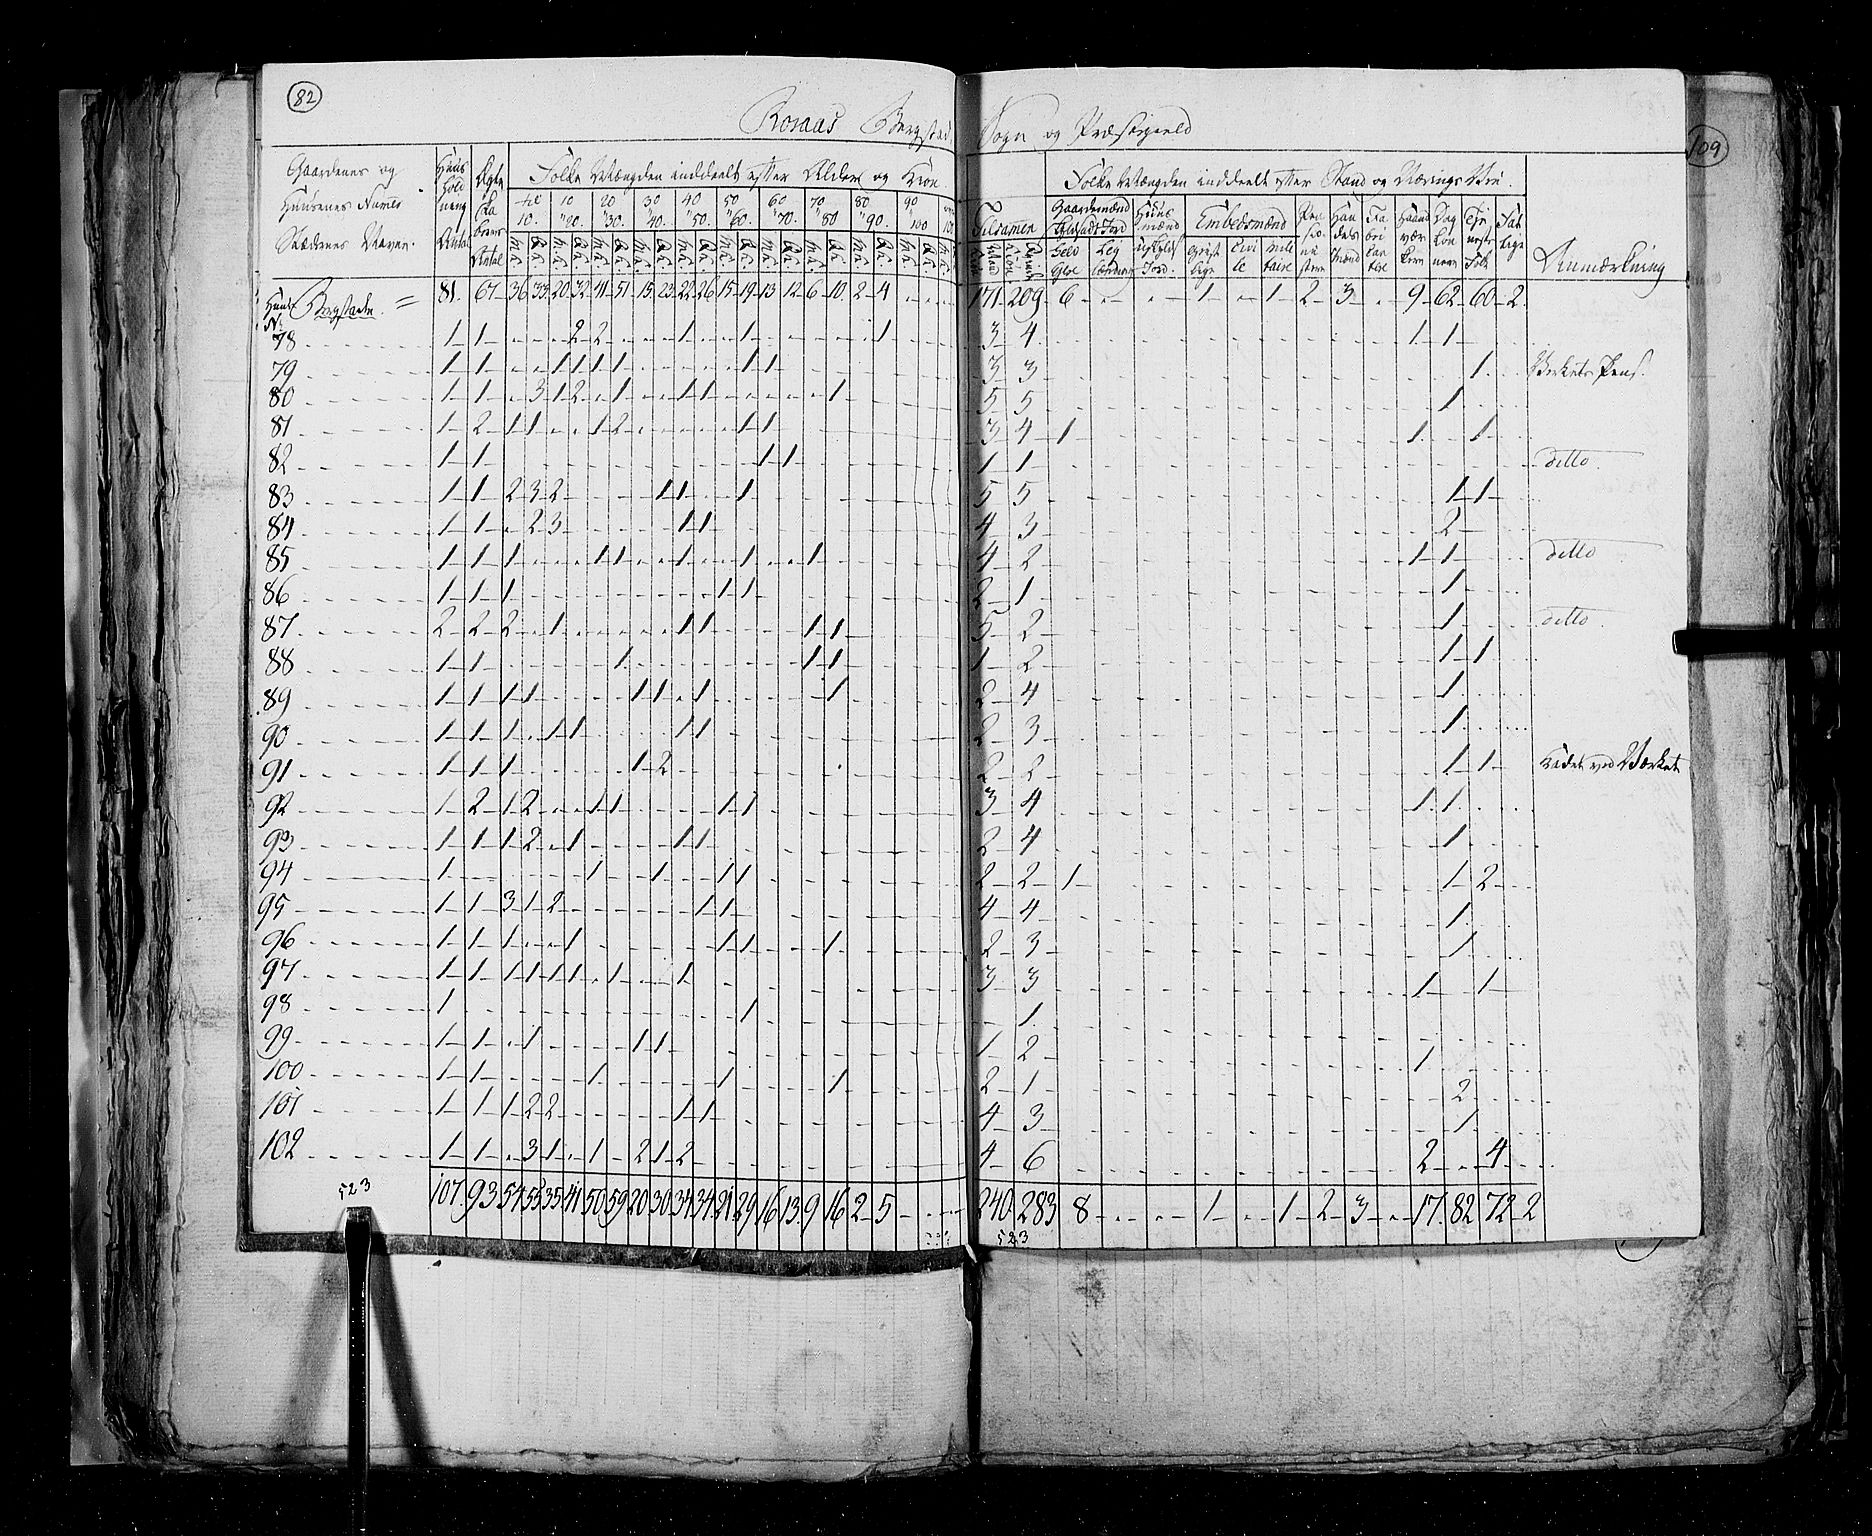 82
109
Roraas Bergstad Sogn og Præstegield
Gaardenes og Huusenes Navne Stædernes Navne.
Huus holdnings Antal
Ægte Pa Antal
Folke Mængden inddeelt efter Alder og Kiøn.
til 10. 10 " 20. 20 " 30. 30 " 40. 40 " 50. 50 " 60. 60 " 70. 70 " 80 80 " 90. 90 " 100
Tilsamen Mand Kiøn Qvinde
Folke Mængden inddeelt efter Stand og Nærings Vei.
Gaardemænd Selv Eiere Ley lændinge
Huus mænd Jord.
Embedsmænd Geist lige Civi le mili taire
Pen sio ni ster
Han dels Mænd
Fa bri kan tere
Haand vær kere
Dag løn nere
Tje neste Folk
Fat tige
Anmærkning
Huus No Bergstaden = 81. 67 36 33 20 32 41 51 15 23 22 26 15 19 13 12 6 10 2 4 171 209 6 1 1 2 3 9 62 60 2
78 1 1 2 2 1 1 1 3 4 1 1
79 1 1 1 1 1 1 1 1 3 3 1 Verkets Pens.
80 1 1 3 1 2 1 1 1 1 5 5 1
81 1 2 1 1 1 2 1 1 3 4 1 1 1
82 1 1 1 1 1 1 ditto
83 1 1 2 3 2 1 1 1 5 5 1 1
84 1 1 2 3 1 1 4 3 2
85 1 1 1 1 1 1 1 1 4 2 1 1 ditto
86 1 1 1 1 1 2 1 1
87 2 2 2 1 1 1 1 1 5 2 1 ditto
88 1 1 1 1 1 1 2 1 1
89 1 1 1 1 1 1 1 1 2 4 1
90 1 1 1 1 1 1 1 2 3 1
91 1 1 1 1 2 2 2 1 1 ved Værket
92 1 2 1 2 1 1 1 1 3 4 1 1
93 1 1 1 2 1 1 1 2 4 1
94 1 1 1 1 1 2 2 1 1 2
95 1 1 3 1 2 1 1 4 4 1
96 1 1 1 1 1 1 1 2 3 1
97 1 1 1 1 1 1 1 1 3 3 1 1
98 1 1 1
99 1 1 1 1 1 1 2
100 1 1 1 1 1 2 1 1
101 1 1 1 2 2 1 1 4 3 2 1
102 1 1 3 1 1 2 1 2 4 6 2 4
107. 93 54 53 35 41 50 59 20 30 34 34 21 29 16 13 9 16 2 5 240. 283 8 1 1 2 3 17. 82 72 2
523
523